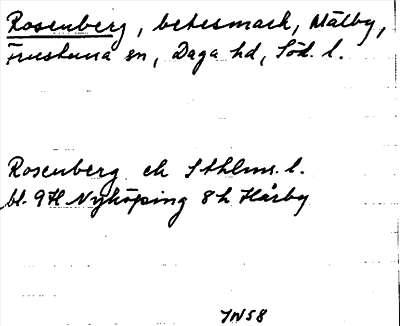 Rosenberg, betesmark, Målby,
Frustuna sn, Daga hd, Söd. l.
Rosenberg ek Sthlms. l.
bl. 9H Nyköping 8h Hårby
JW58